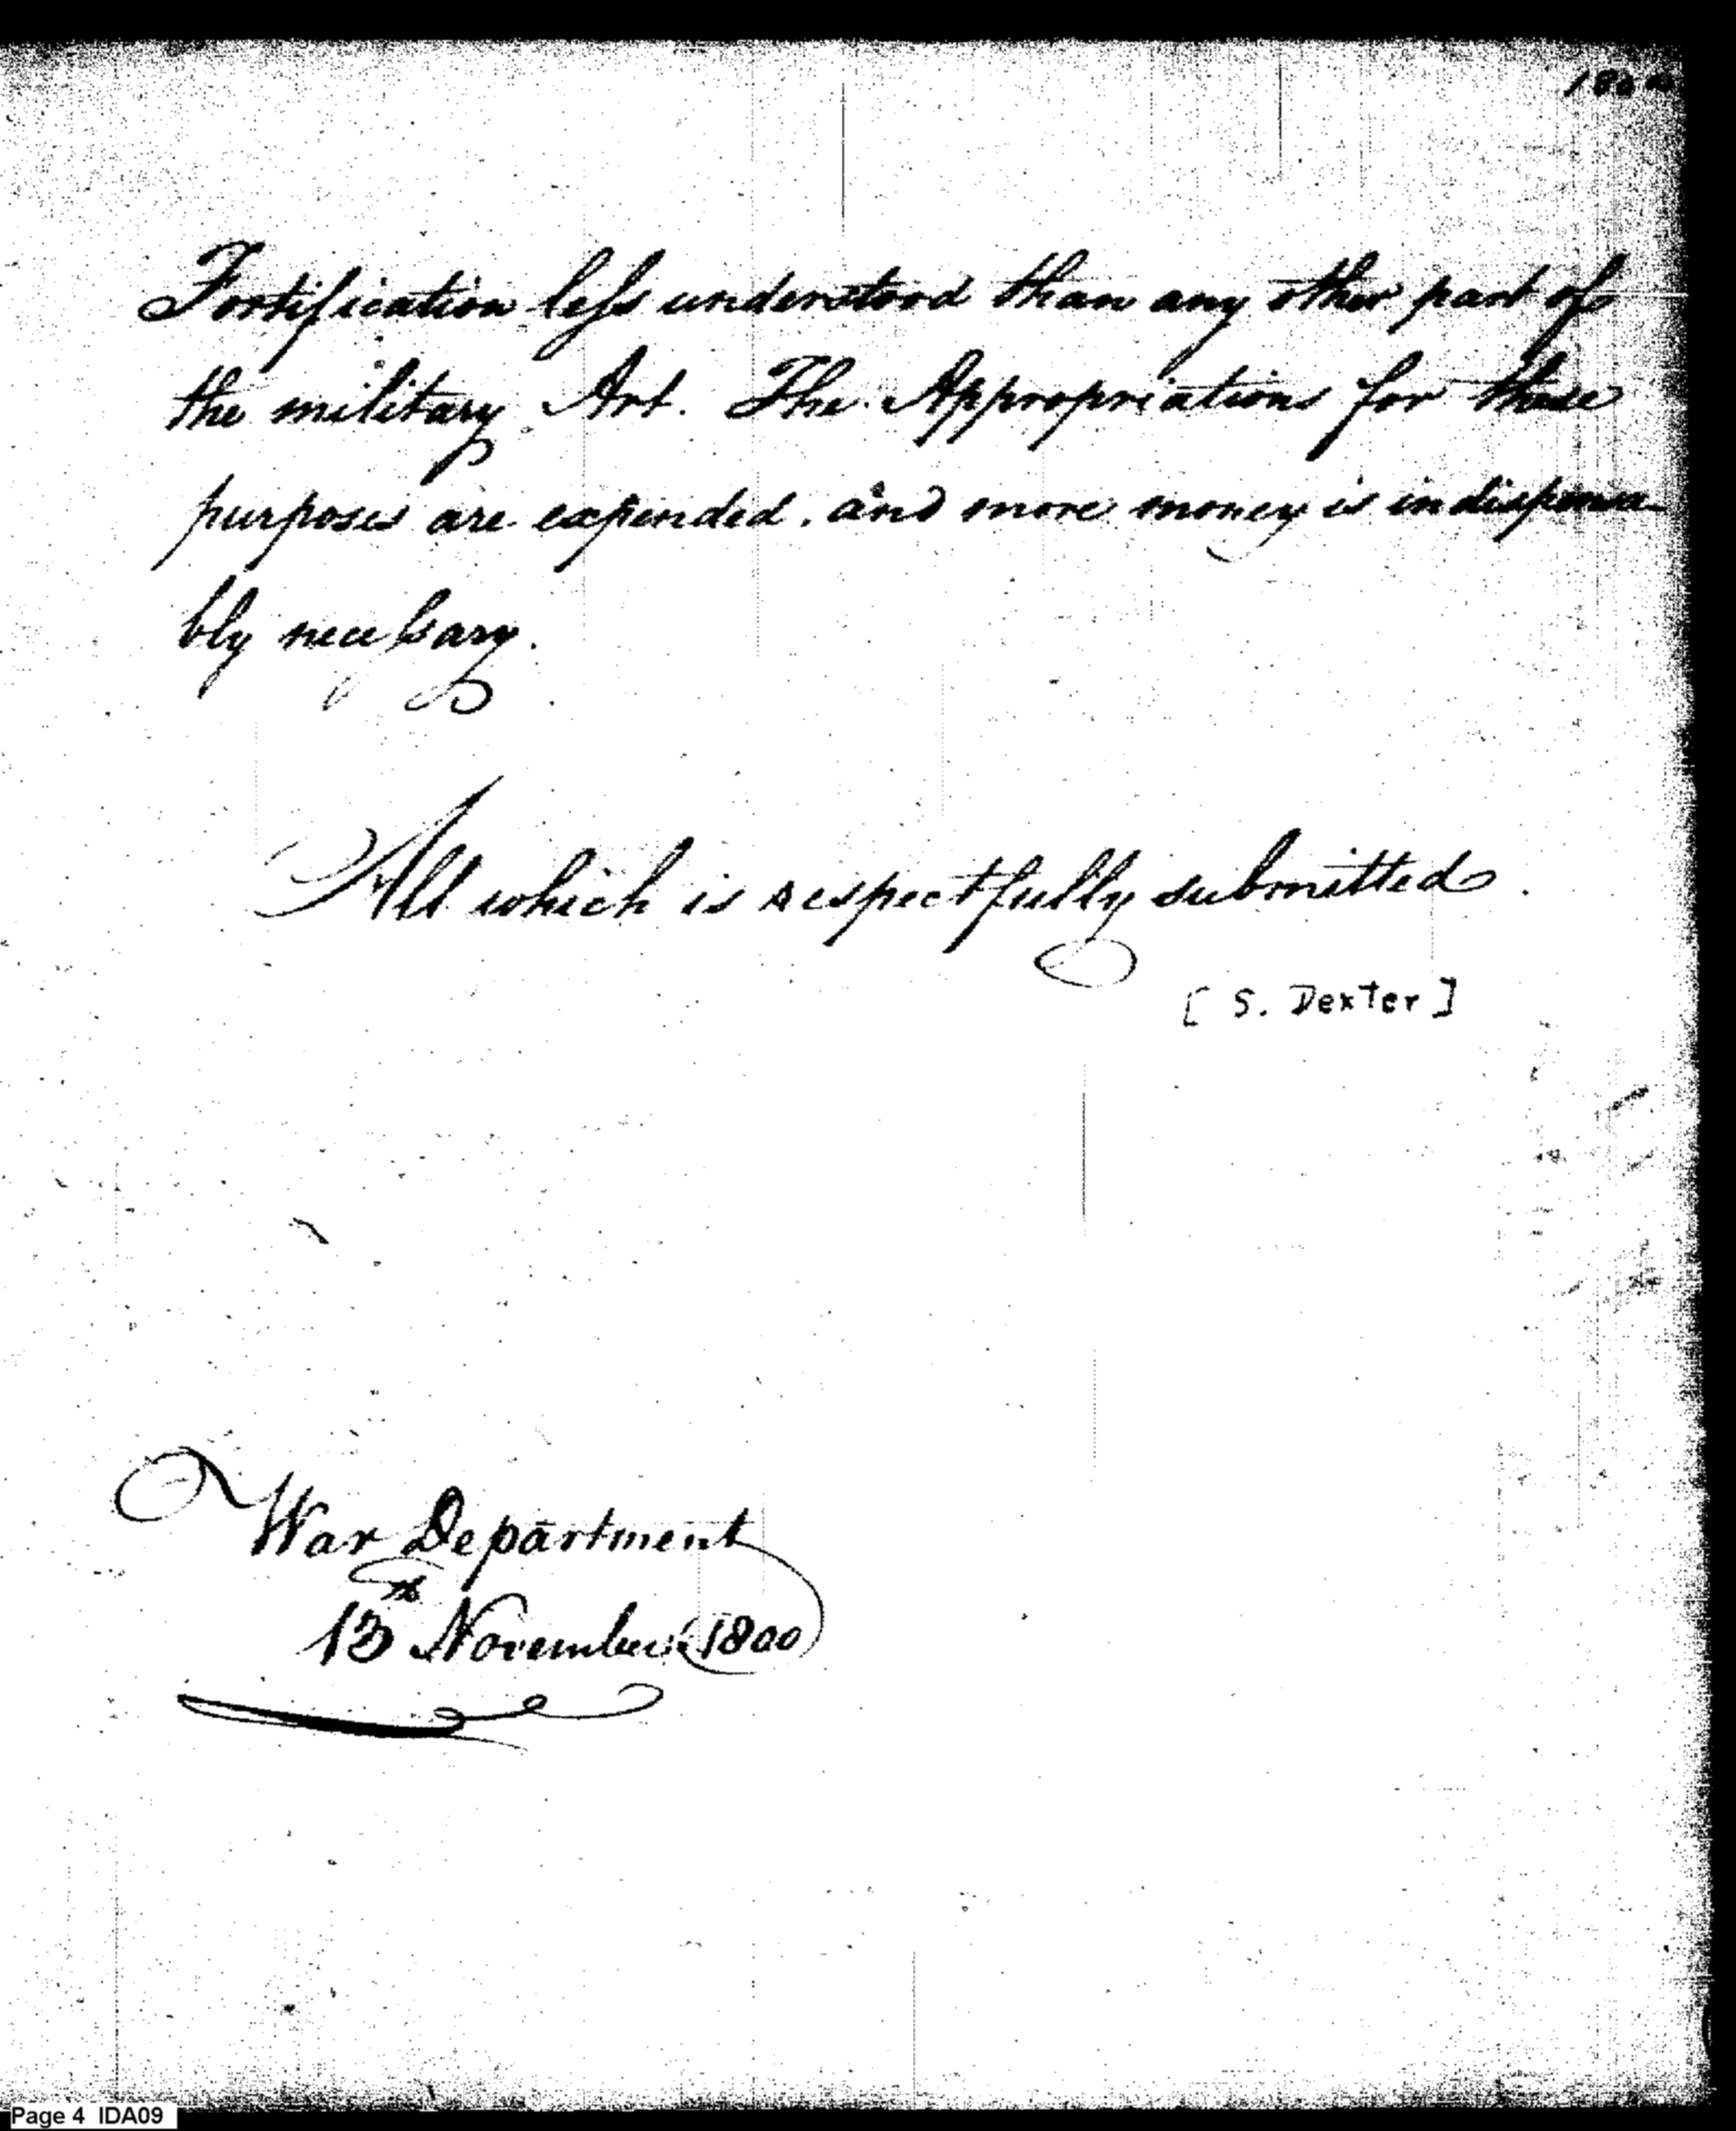 1800
Fortification less understood than any other part of
the military Art. The Appropriations for these
purposes are expended. and more money is indispensa-
bly necessary.
All which is respectfully submitted.
[ S. Dexter ]
War Department
13th November 1800
Page 4 IDA09